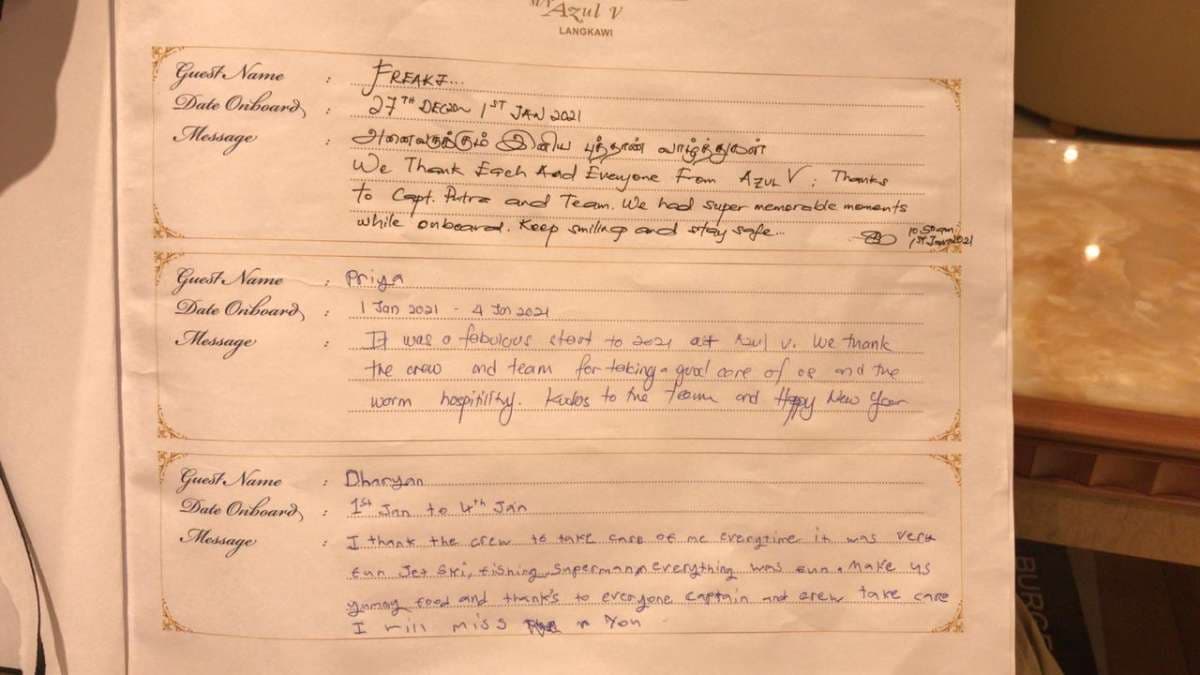 M/Y Azul V
LANGKAWI
Guest Name : FREAKZ...
Date Onboard : 27TH DEC20 ~ 1ST JAN 2021
Message : அனைவருக்கும் இனிய புத்தாண் வாழ்த்துகள்
We Thank Each And Everyone From AZUL V; Thanks
to Capt. Putra and Team. We had super memorable moments
while onboard. Keep smiling and stay safe...
10:50am
1ST Jan 2021
Guest Name : Priya
Date Onboard : 1 Jan 2021 - 4 Jan 2021
Message : It was a fabulous start to 2021 at Azul V. We thank
the crew and team for taking a good care of us and the
warm hospitility. Kudos to the team and Happy New Year
Guest Name : Dharyan
Date Onboard : 1st Jan to 4th Jan
Message : I thank the crew to take care of me everytime it was very
fun Jet Ski, fishing, superman, everything was fun. Make us
yummy food and thank's to everyone captain and crew take care
I will miss You
BURG